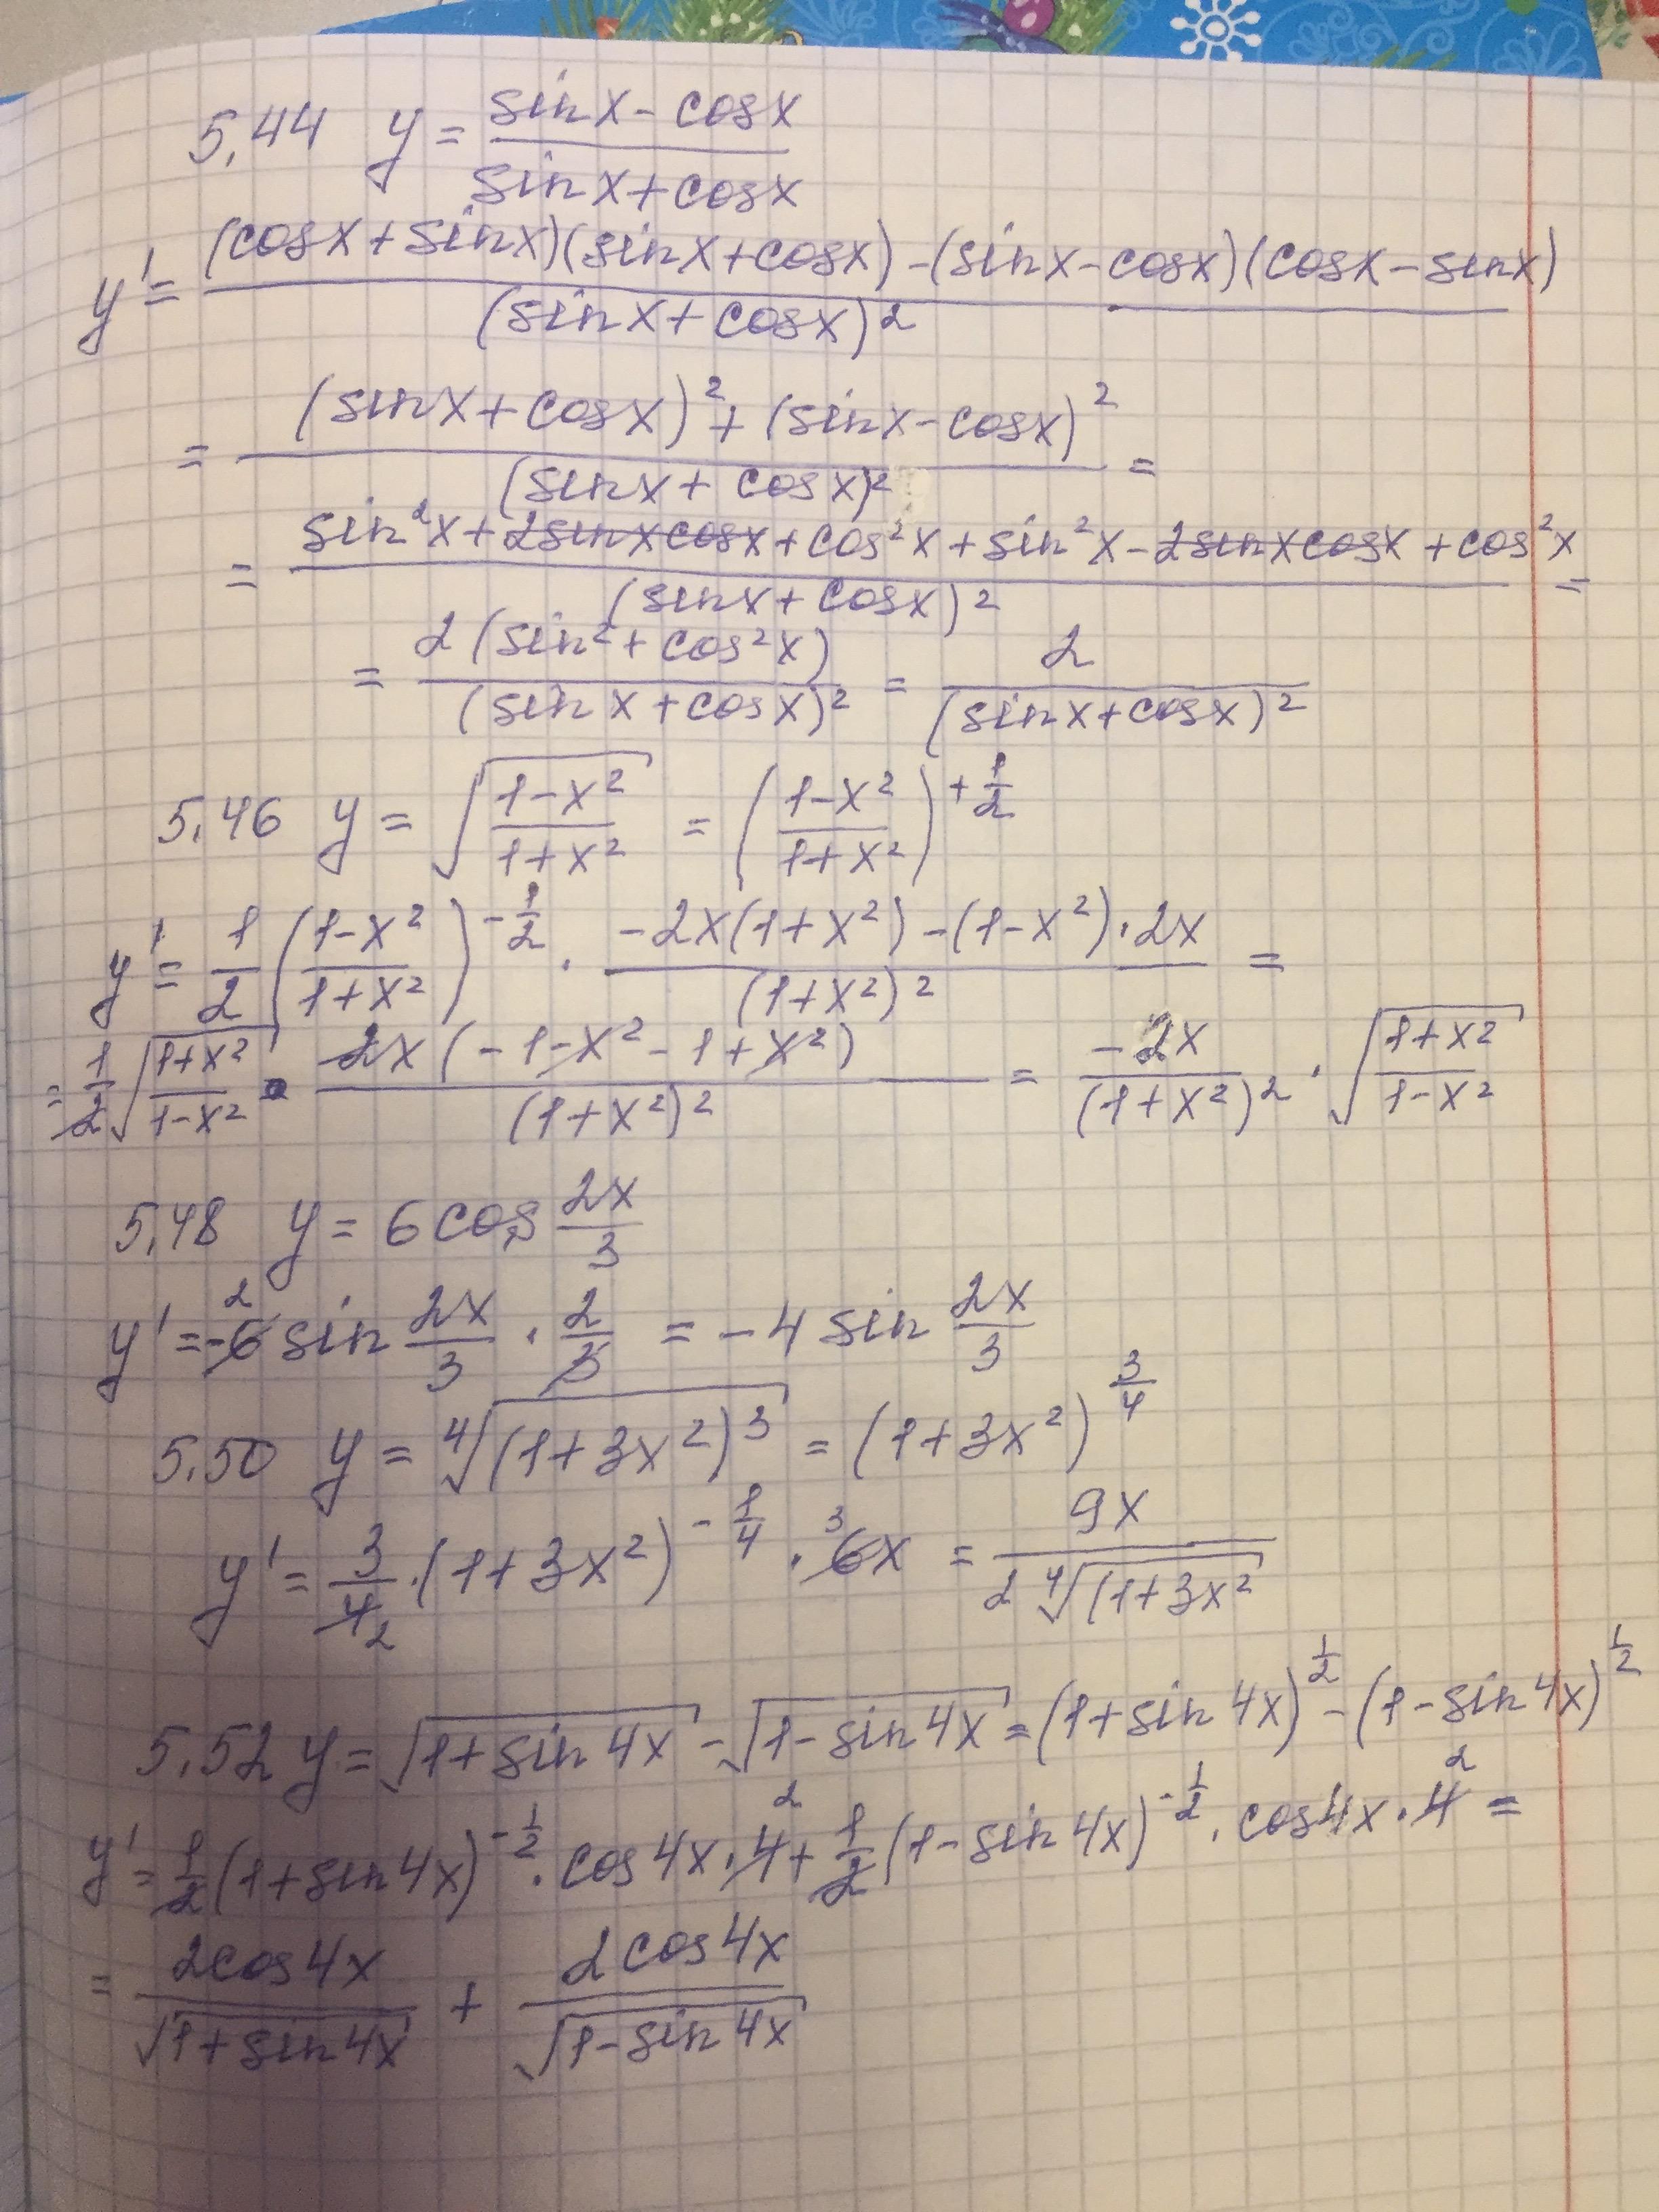 5,44 y = (sinx - cosx)/(sinx + cosx)
y' = ((cosx + sinx)(sinx + cosx) - (sinx - cosx)(cosx - sinx))/(sinx + cosx)²
= ((sinx + cosx)² + (sinx - cosx)²)/(sinx + cosx)² =
= (sin²x + 2sinxcosx + cos²x + sin²x - 2sinxcosx + cos²x)/(sinx + cosx)² =
= 2(sin² + cos²x)/(sinx + cosx)² = 2/(sinx + cosx)²
5,46 y = √((1-x²)/(1+x²)) = ((1-x²)/(1+x²))^(+1/2)
y' = 1/2 ((1-x²)/(1+x²))^(-1/2) · (-2x(1+x²) - (1-x²)·2x)/(1+x²)² =
= 1/2 √((1+x²)/(1-x²)) · 2x(-1-x²-1+x²)/(1+x²)² = -2x/(1+x²)² · √((1+x²)/(1-x²))
5,48 y = 6cos 2x/3
y' = -6 2 sin 2x/3 · 2/3 = -4 sin 2x/3
5,50 y = ⁴√((1+3x²)³) = (1+3x²)^(3/4)
y' = 3/4 2 · (1+3x²)^(-1/4) · 6 3 x = 9x/(2 ⁴√(1+3x²)
5,52 y = √(1+sin4x) - √(1-sin4x) = (1+sin4x)^(1/2) - (1-sin4x)^(1/2)
y' = 1/2 (1+sin4x)^(-1/2) · cos4x · 4 2 + 1/2 (1-sin4x)^(-1/2) · cos4x · 4 2 =
= 2cos4x/√(1+sin4x) + 2cos4x/√(1-sin4x)